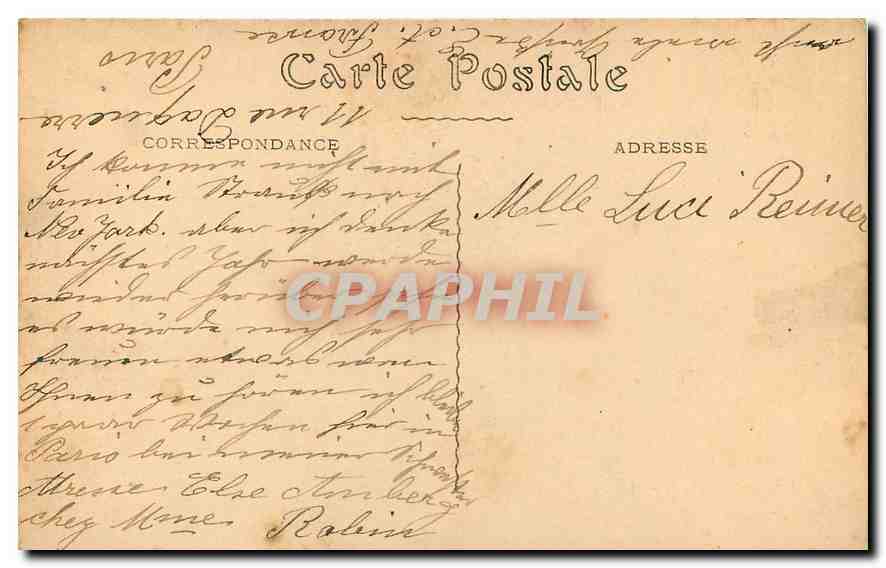 Carte Postale
CORRESPONDANCE
ADRESSE
Mlle Luci Reimer
Ich komme nicht mit
Familie Strauß nach
New York. aber ich denke
nächstes Jahr werde
wieder herüber gehn
es würde mich sehr
freuen etwas von
Ihnen zu hören ich bleibe
1 paar Wochen hier in
Paris bei meiner Schwester
Adresse Else Amberg
chez Mme Robin
11 rue Daguerre
Paris
France
CPAPHIL